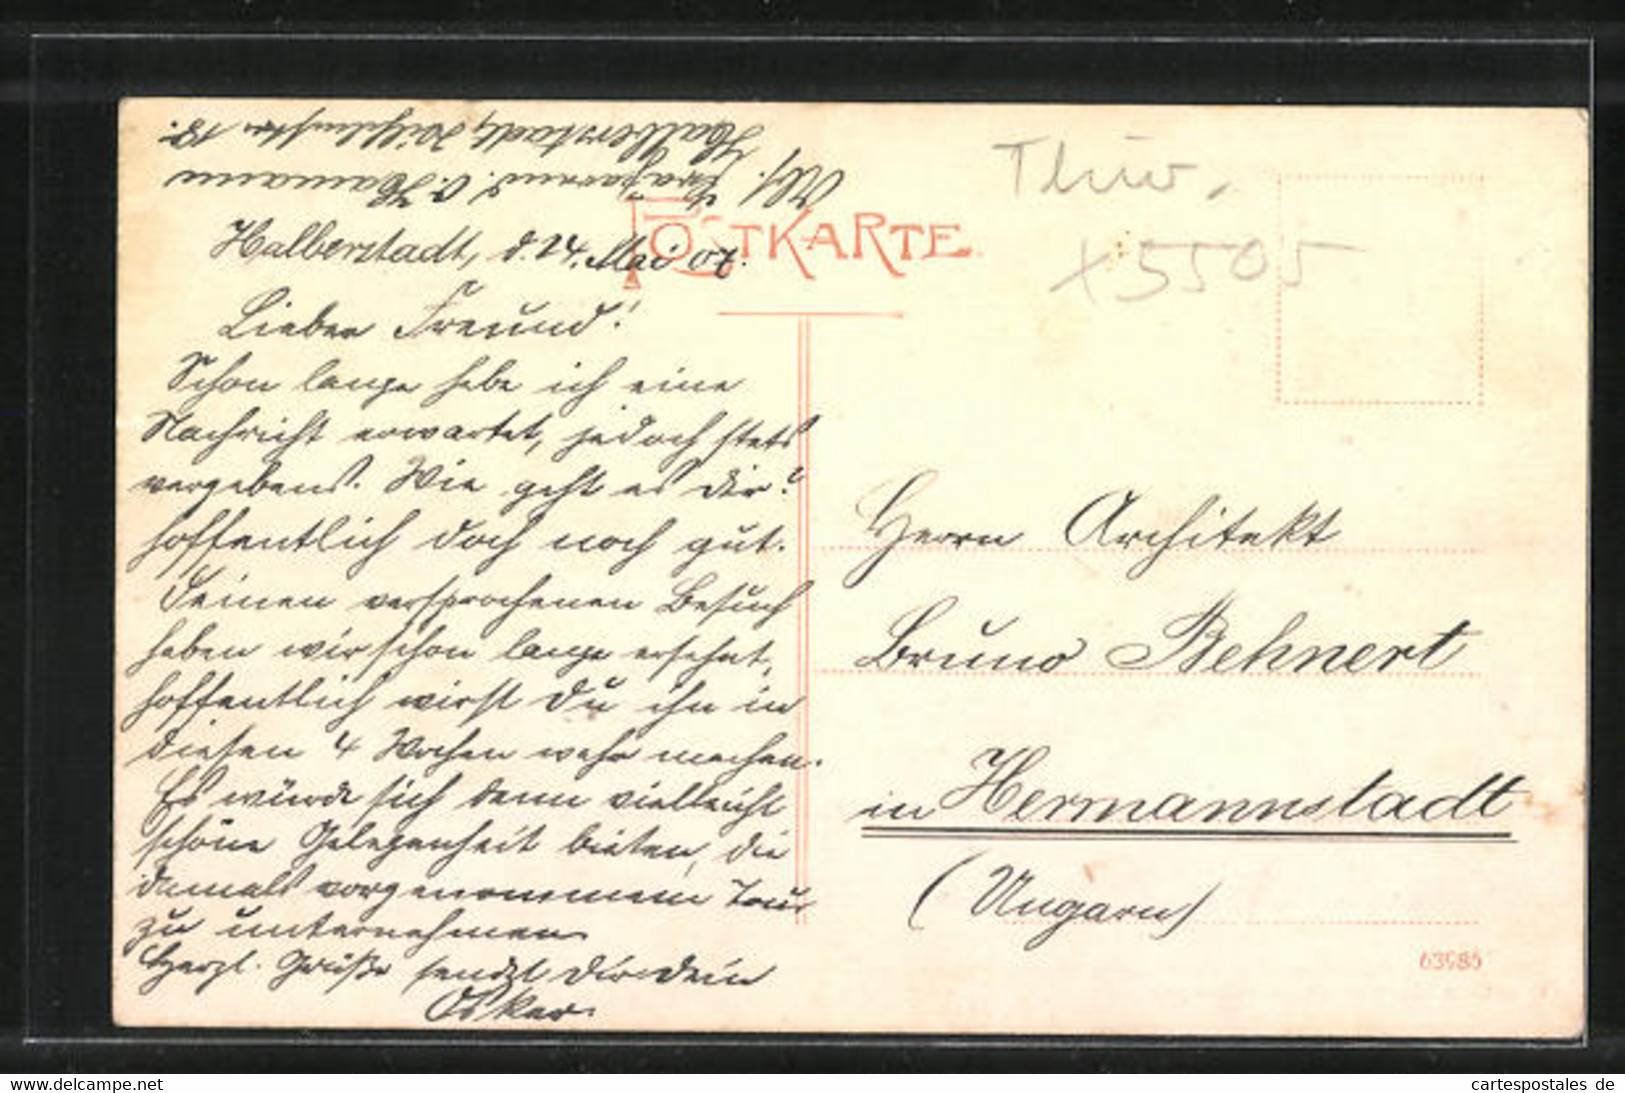 Halberstadt, Wilhelmstr. 18.
Abs. O. Hamann
POSTKARTE
Halberstadt, d. 24. Mai 07.
Lieber Freund!
Schon lange habe ich eine
Nachricht erwartet, jedoch stets
vergebens. Wie geht es Dir?
hoffentlich doch noch gut.
Deinen versprochenen Besuch
haben wir schon lange ersehnt,
hoffentlich wirst Du ihn in
diesen 4 Wochen wahr machen.
Es würde sich dann vielleicht
schöne Gelegenheit bieten, die
damals vorgenommene Tour
zu unternehmen.
Herzl. Grüße sendet Dir Dein
Oskar.
Thür.
x 5505
Herrn Architekt
Bruno Behnert
in Hermannstadt
(Ungarn)
63985
www.delcampe.net
cartespostales de